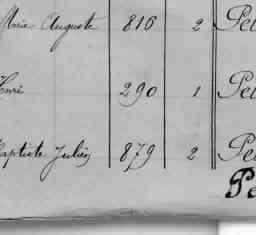 Marie Auguste 816 2 Pe
Henri 290 1 Pe
Baptiste Julien 879 2 Pe
Pe